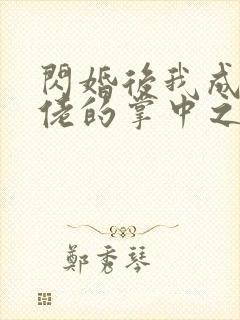 閃婚後我成
佬的掌中之
鄭秀琴